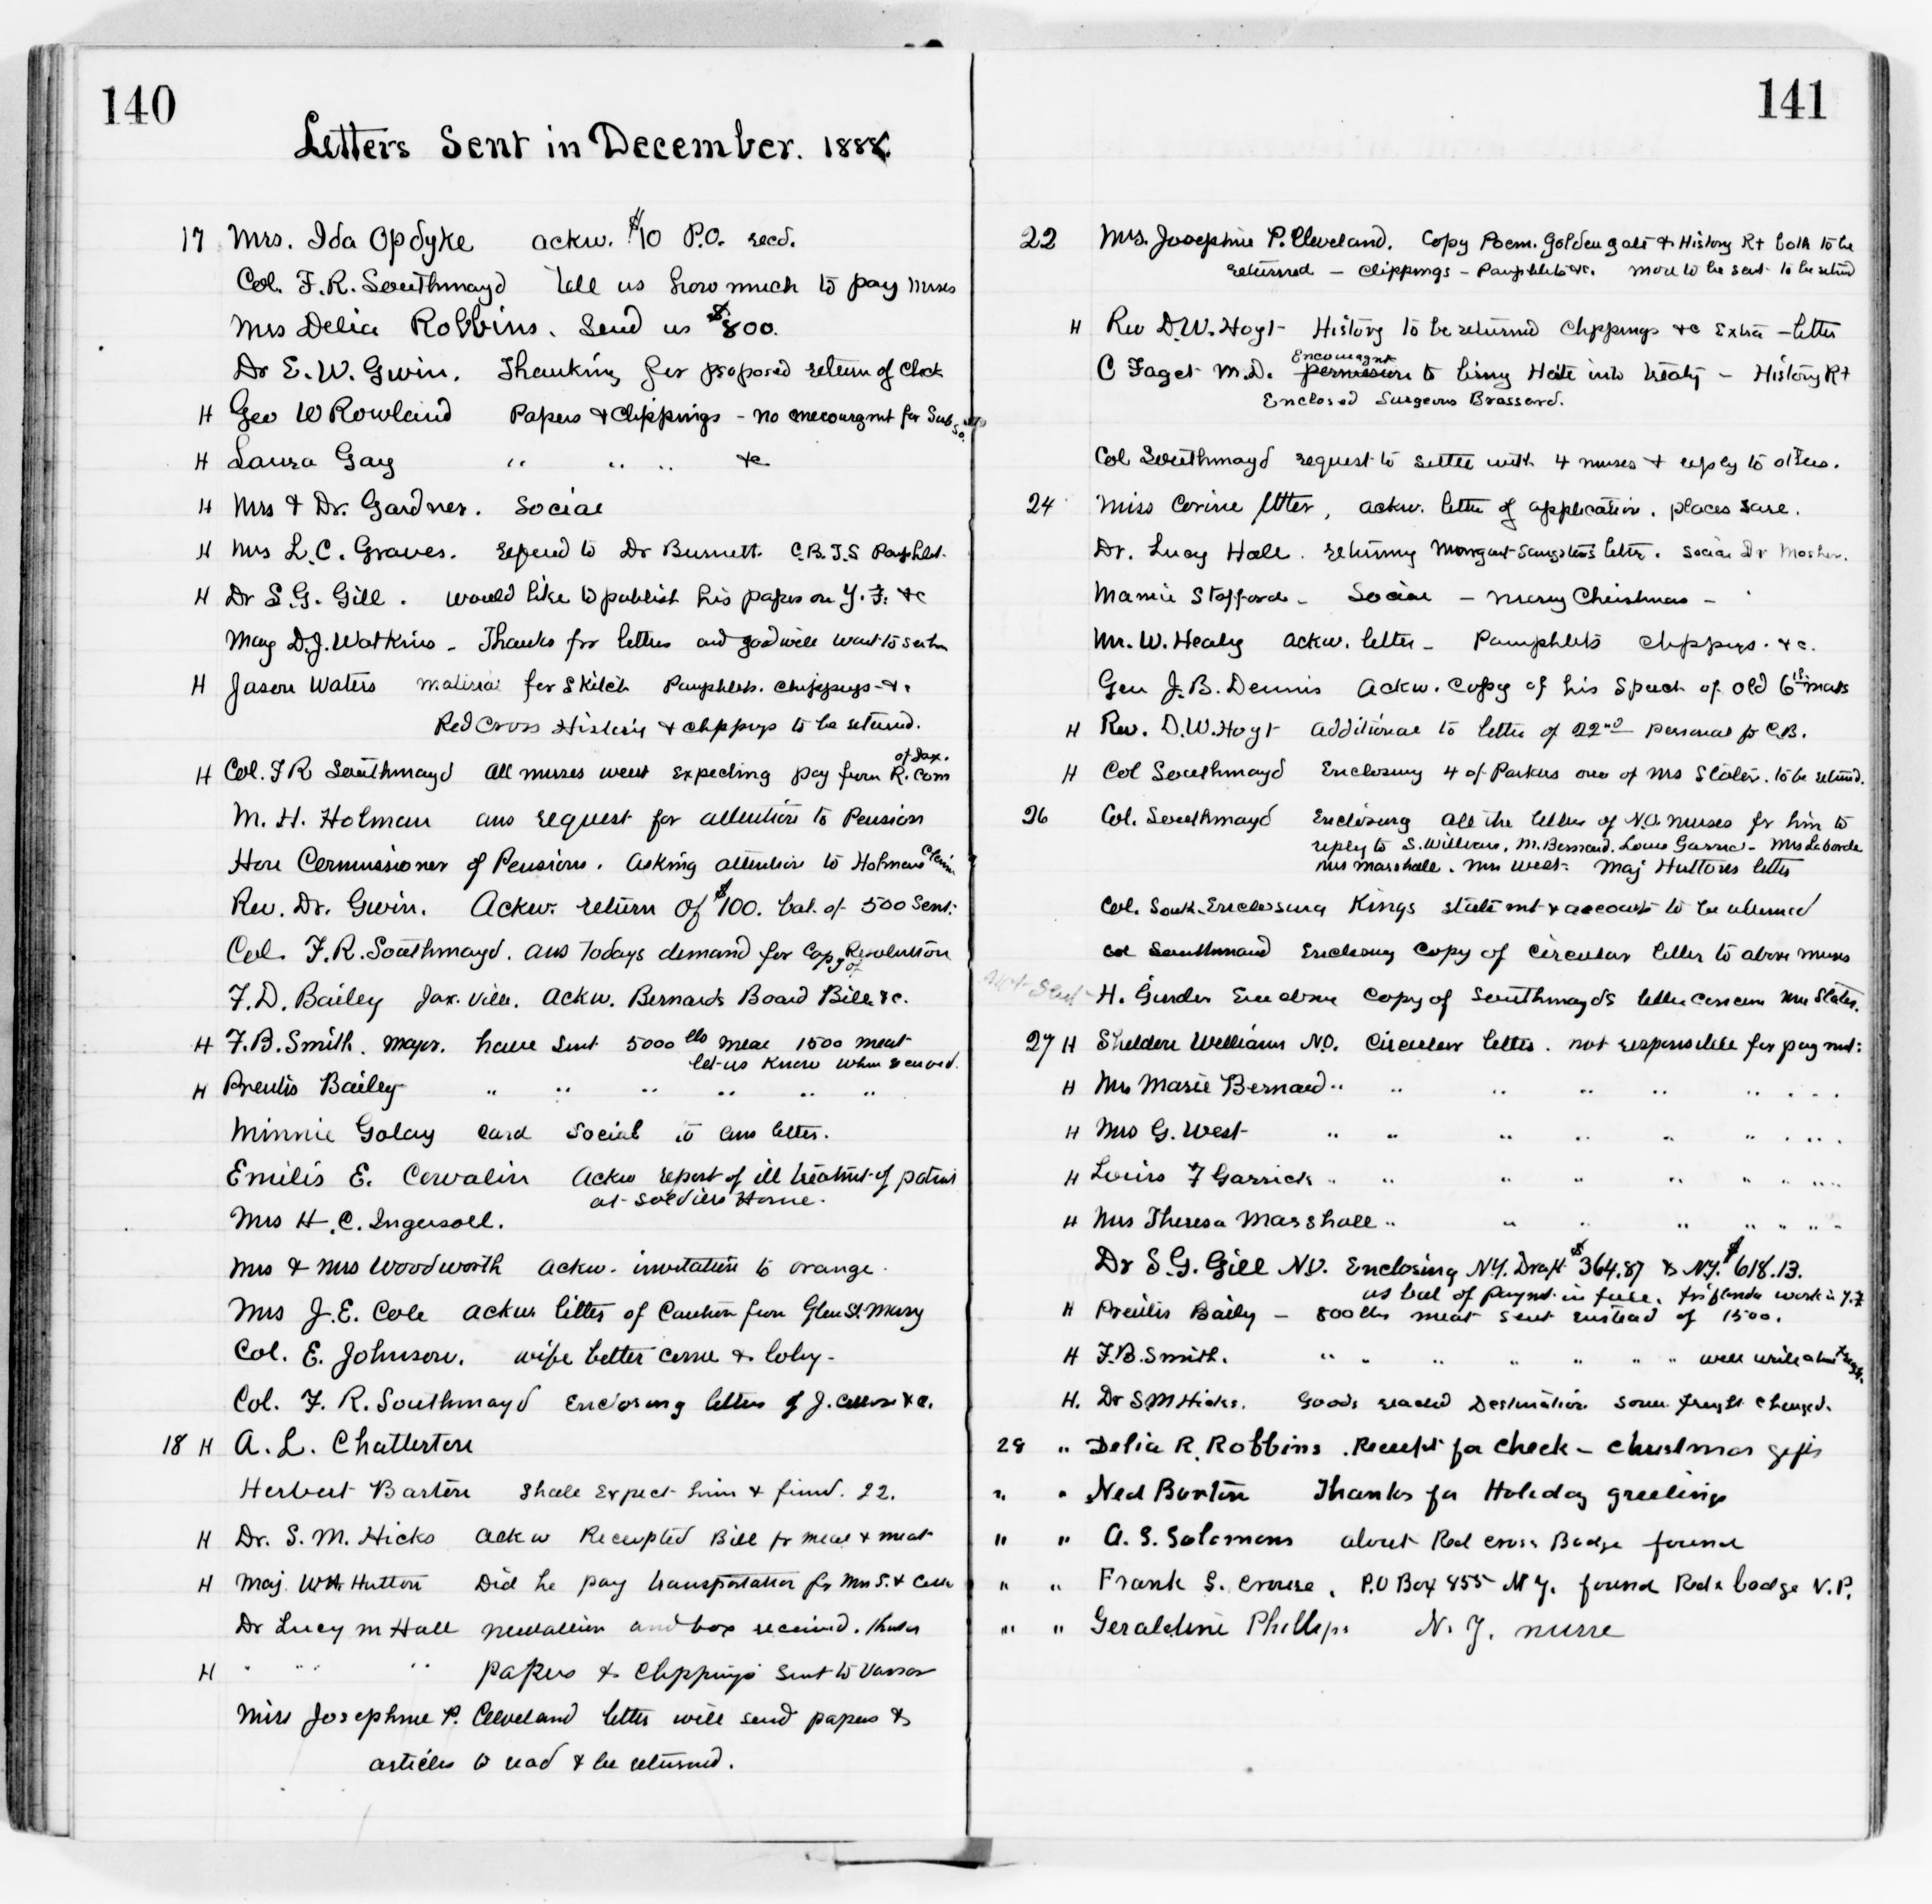 140
Letters Sent in December. 1888.
17 Mrs. Ida Opdyke ackw. $10 P.O. recd.
Col. F.R. Southmayd Tell us how much to pay nurses
Mrs Delia Robbins. Send us $800.
Dr E.W. Gwin. Thanking for proposed return of Check
H Geo W Rowland Papers & Clippings - no encouragmt for Sub
H Laura Gay " " " &c
H Mrs & Dr. Gardner. Social
H Mrs L.C. Graves. refered to Dr Burnett. Pamphlet.
H Dr S.G. Gill. would like to publish his paper on Y.F. &c
D.J. Watkins - Thanks for letters and goodwill want to
H Jason Waters material for Sketch Pamphlets. clippings &c
Red Cross History & clippings to be returned.
of Jax.
H Col. F R Southmayd All nurses went expecting pay from R. Com
M. H. Holman ans request for attention to Pension
Hon Commissioner of Pensions. Asking attention to Holmans Claim
Rev. Dr. Gwin. Ackw. return of $100. bal. of 500 Sent.
Col. F.R. Southmayd. ans Todays demand for Copy of Resolution
F.D. Bailey Jax. ville. Ackw. Bernards Board Bill &c.
H F.B. Smith. Mayor. have sent 5000 lbs meal 1500 meat
let us know when received.
H Prentis Bailey " " " " " "
Minnie Golay card social to ans letter.
Emilis E. Ackw report of ill treatmt of patients
at Soldiers Home.
Mrs H.C. Ingersoll.
Mrs & Mrs Woodworth ackw. invitation to orange.
Mrs J.E. Cole ackw letter of Caution from Glen St. Mary
Col. E. Johnson. wife better come &
Col. F. R. Southmayd Enclosing letters of J. &c.
18 H A. L. Chatterton
Herbert Barton Shall Expect him & find. 22.
H Dr. S.M. Hicks Ackw Receipted Bill for meal & meat
H Maj. WH Hutton Did he pay transportation for Mrs S. &
Dr Lucy M Hall medallion and box received. thanks
H " " " papers & clippings sent to Vassar
Miss Josephine P. Cleveland letter will send papers &
articles to read & be returned.
141
22 Mrs. Josephine P. Cleveland. Copy Poem. Golden gate & History R+ both to be
returned - clippings - Pamphlets &c. more to be sent to be retnd
H Rev D.W. Hoyt History to be returned Clippings &c Extra - letter
Encouragmt
C Faget M.D. permission to bring Haiti into treaty - History R+
Enclosed Surgeons Brassard.
Col Southmayd request to settle with 4 nurses & reply to others.
24 Miss Corine ackw. letter of application. places
Dr. Lucy Hall. returning Margaret Sangsters letter. social Dr Mosher.
Mamie Stafford - Social - merry Christmas -
Mr. W. Healy ackw. letter - Pamphlets clippings. &c.
Gen J.B. Dennis Ackw. Copy of his Speech of old 6th Mass
H Rev. D.W. Hoyt additional to letter of 22nd personal for C.B.
H Col Southmayd Enclosing 4 of Parkers one of Mrs Slater. to be retund.
26 Col. Southmayd Enclosing all the letters of N.O. nurses for him to
reply to S. Williams, M. Bernard. Louis Garrick - Mrs Laborde
Mrs Marshall. Mrs West. Maj Huttons letter
Col. South. Enclosing Kings statemt & accounts to be returned
Col Southmayd Enclosing Copy of circular letter to above nurses
H. Enclosing Copy of Southmayds letter concern Mrs Slater.
27 H Sheldon Williams N.O. Circular letter. not responsible for paymt:
H Mrs Marie Bernard " " " " " " " "
H Mrs G. West " " " " " " " "
H Louis F Garrick " " " " " " " "
H Mrs Theresa Marshall " " " " " " " "
Dr S.G. Gill N.O. Enclosing N.Y. Draft $364.87 & N.Y. $618.13.
as bal of paymt in full. for florida work in Y.F
H Prentis Baily - 800 lbs meat sent instead of 1500.
H F.B. Smith. " " " " " " " will write about
H. Dr S M Hicks. Goods reached Destination some freight charged.
28 " Delia R. Robbins. Receipt for check - christmas gifts
" " Ned Barton Thanks for Holiday greetings
" " A. S. Solomons about Red Cross Badge found
" " Frank S. Crouse, P.O Box 455 N.Y. found Red x badge N.P.
" " Geraldine Phillips N.Y. nurse